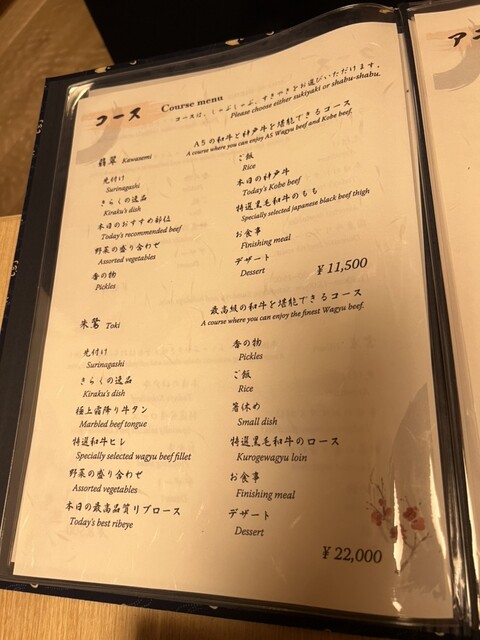 コース Course menu
コースは、しゃぶしゃぶ、すきやきをお選びいただけます。
Please choose either sukiyaki or shabu-shabu.
翡翠 Kawasemi
A5の和牛と神戸牛を堪能できるコース
A course where you can enjoy A5 Wagyu beef and Kobe beef.
先付け
Surinagashi
きらくの逸品
Kiraku's dish
本日のおすすめ部位
Today's recommended beef
野菜の盛り合わせ
Assorted vegetables
香の物
Pickles
ご飯
Rice
本日の神戸牛
Today's Kobe beef
特選黒毛和牛のもも
Specially selected japanese black beef thigh
お食事
Finishing meal
デザート
Dessert
¥11,500
朱鷺 Toki
最高級の和牛を堪能できるコース
A course where you can enjoy the finest Wagyu beef.
先付け
Surinagashi
きらくの逸品
Kiraku's dish
極上霜降り牛タン
Marbled beef tongue
特選和牛ヒレ
Specially selected wagyu beef fillet
野菜の盛り合わせ
Assorted vegetables
本日の最高品質リブロース
Today's best ribeye
香の物
Pickles
ご飯
Rice
箸休め
Small dish
特選黒毛和牛のロース
Kurogewagyu loin
お食事
Finishing meal
デザート
Dessert
¥22,000